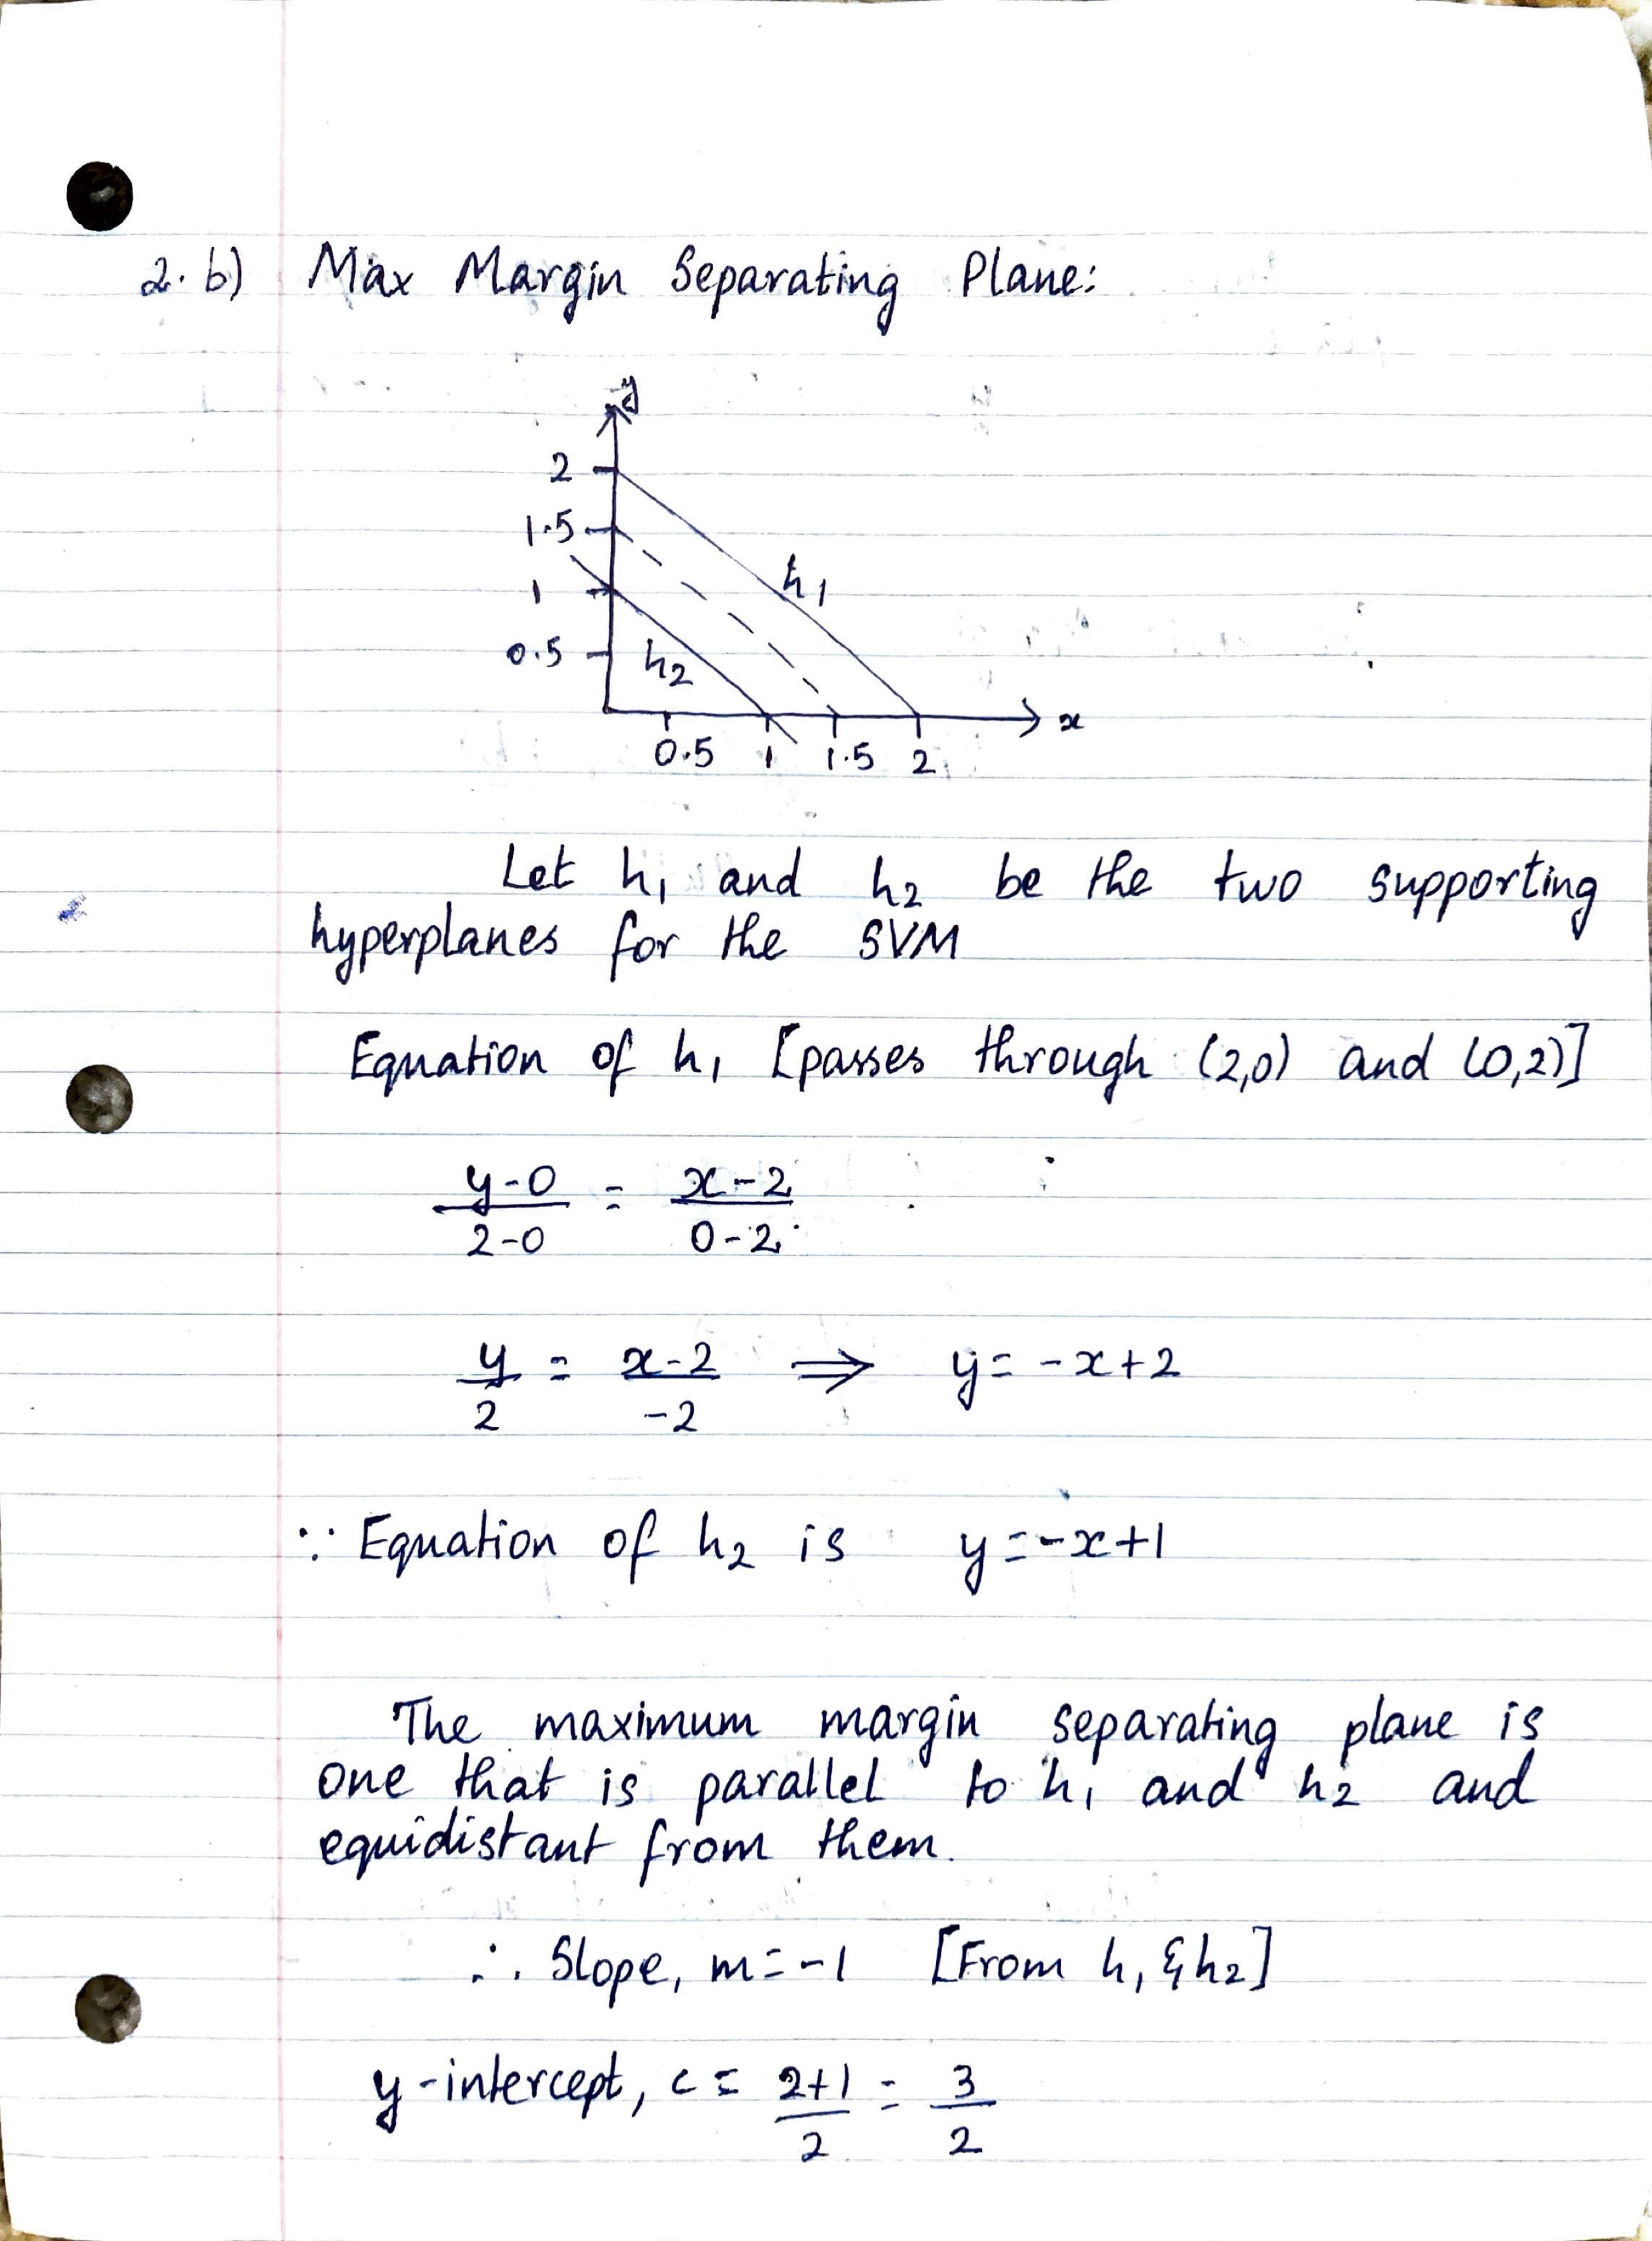 2. b) Max Margin Separating Plane:
y
2
1.5
h1
1
0.5
h2
x
0.5 1 1.5 2
Let h1 and h2 be the two supporting
hyperplanes for the SVM
Equation of h1 [passes through (2,0) and (0,2)]
y-0 / 2-0 = x-2 / 0-2
y/2 = x-2 / -2 ⇒ y = -x+2
∵ Equation of h2 is y = -x+1
The maximum margin separating plane is
one that is parallel to h1 and h2 and
equidistant from them.
∴ Slope, m = -1 [From h1 & h2]
y-intercept, c = 2+1 / 2 = 3/2